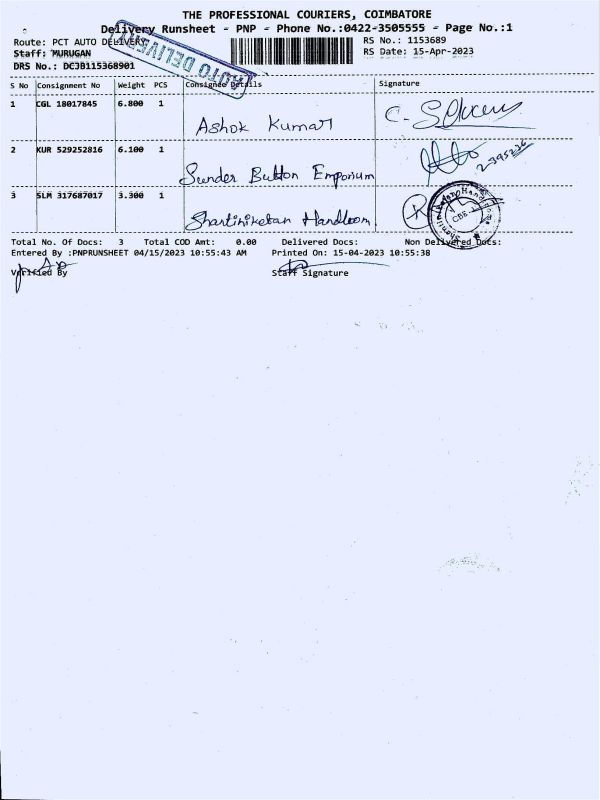 THE PROFESSIONAL COURIERS, COIMBATORE
Delivery Runsheet - PNP - Phone No.:0422-3505555 - Page No.:1
Route: PCT AUTO DELIVERY
RS No.: 1153689
Staff: MURUGAN
RS Date: 15-Apr-2023
DRS No.: DCJB115368901
AUTO DELIVERY
S No Consignment No Weight PCS Consignee Details Signature
1 CGL 18017845 6.800 1 Ashok Kumar
2 KUR 529252816 6.100 1 Sunder Button Emporium
3 SLM 317687017 3.300 1 Shantiniketan Handloom
CBE
Total No. Of Docs: 3 Total COD Amt: 0.00 Delivered Docs: Non Delivered Docs:
Entered By :PNPRUNSHEET 04/15/2023 10:55:43 AM Printed On: 15-04-2023 10:55:38
Verified By Staff Signature